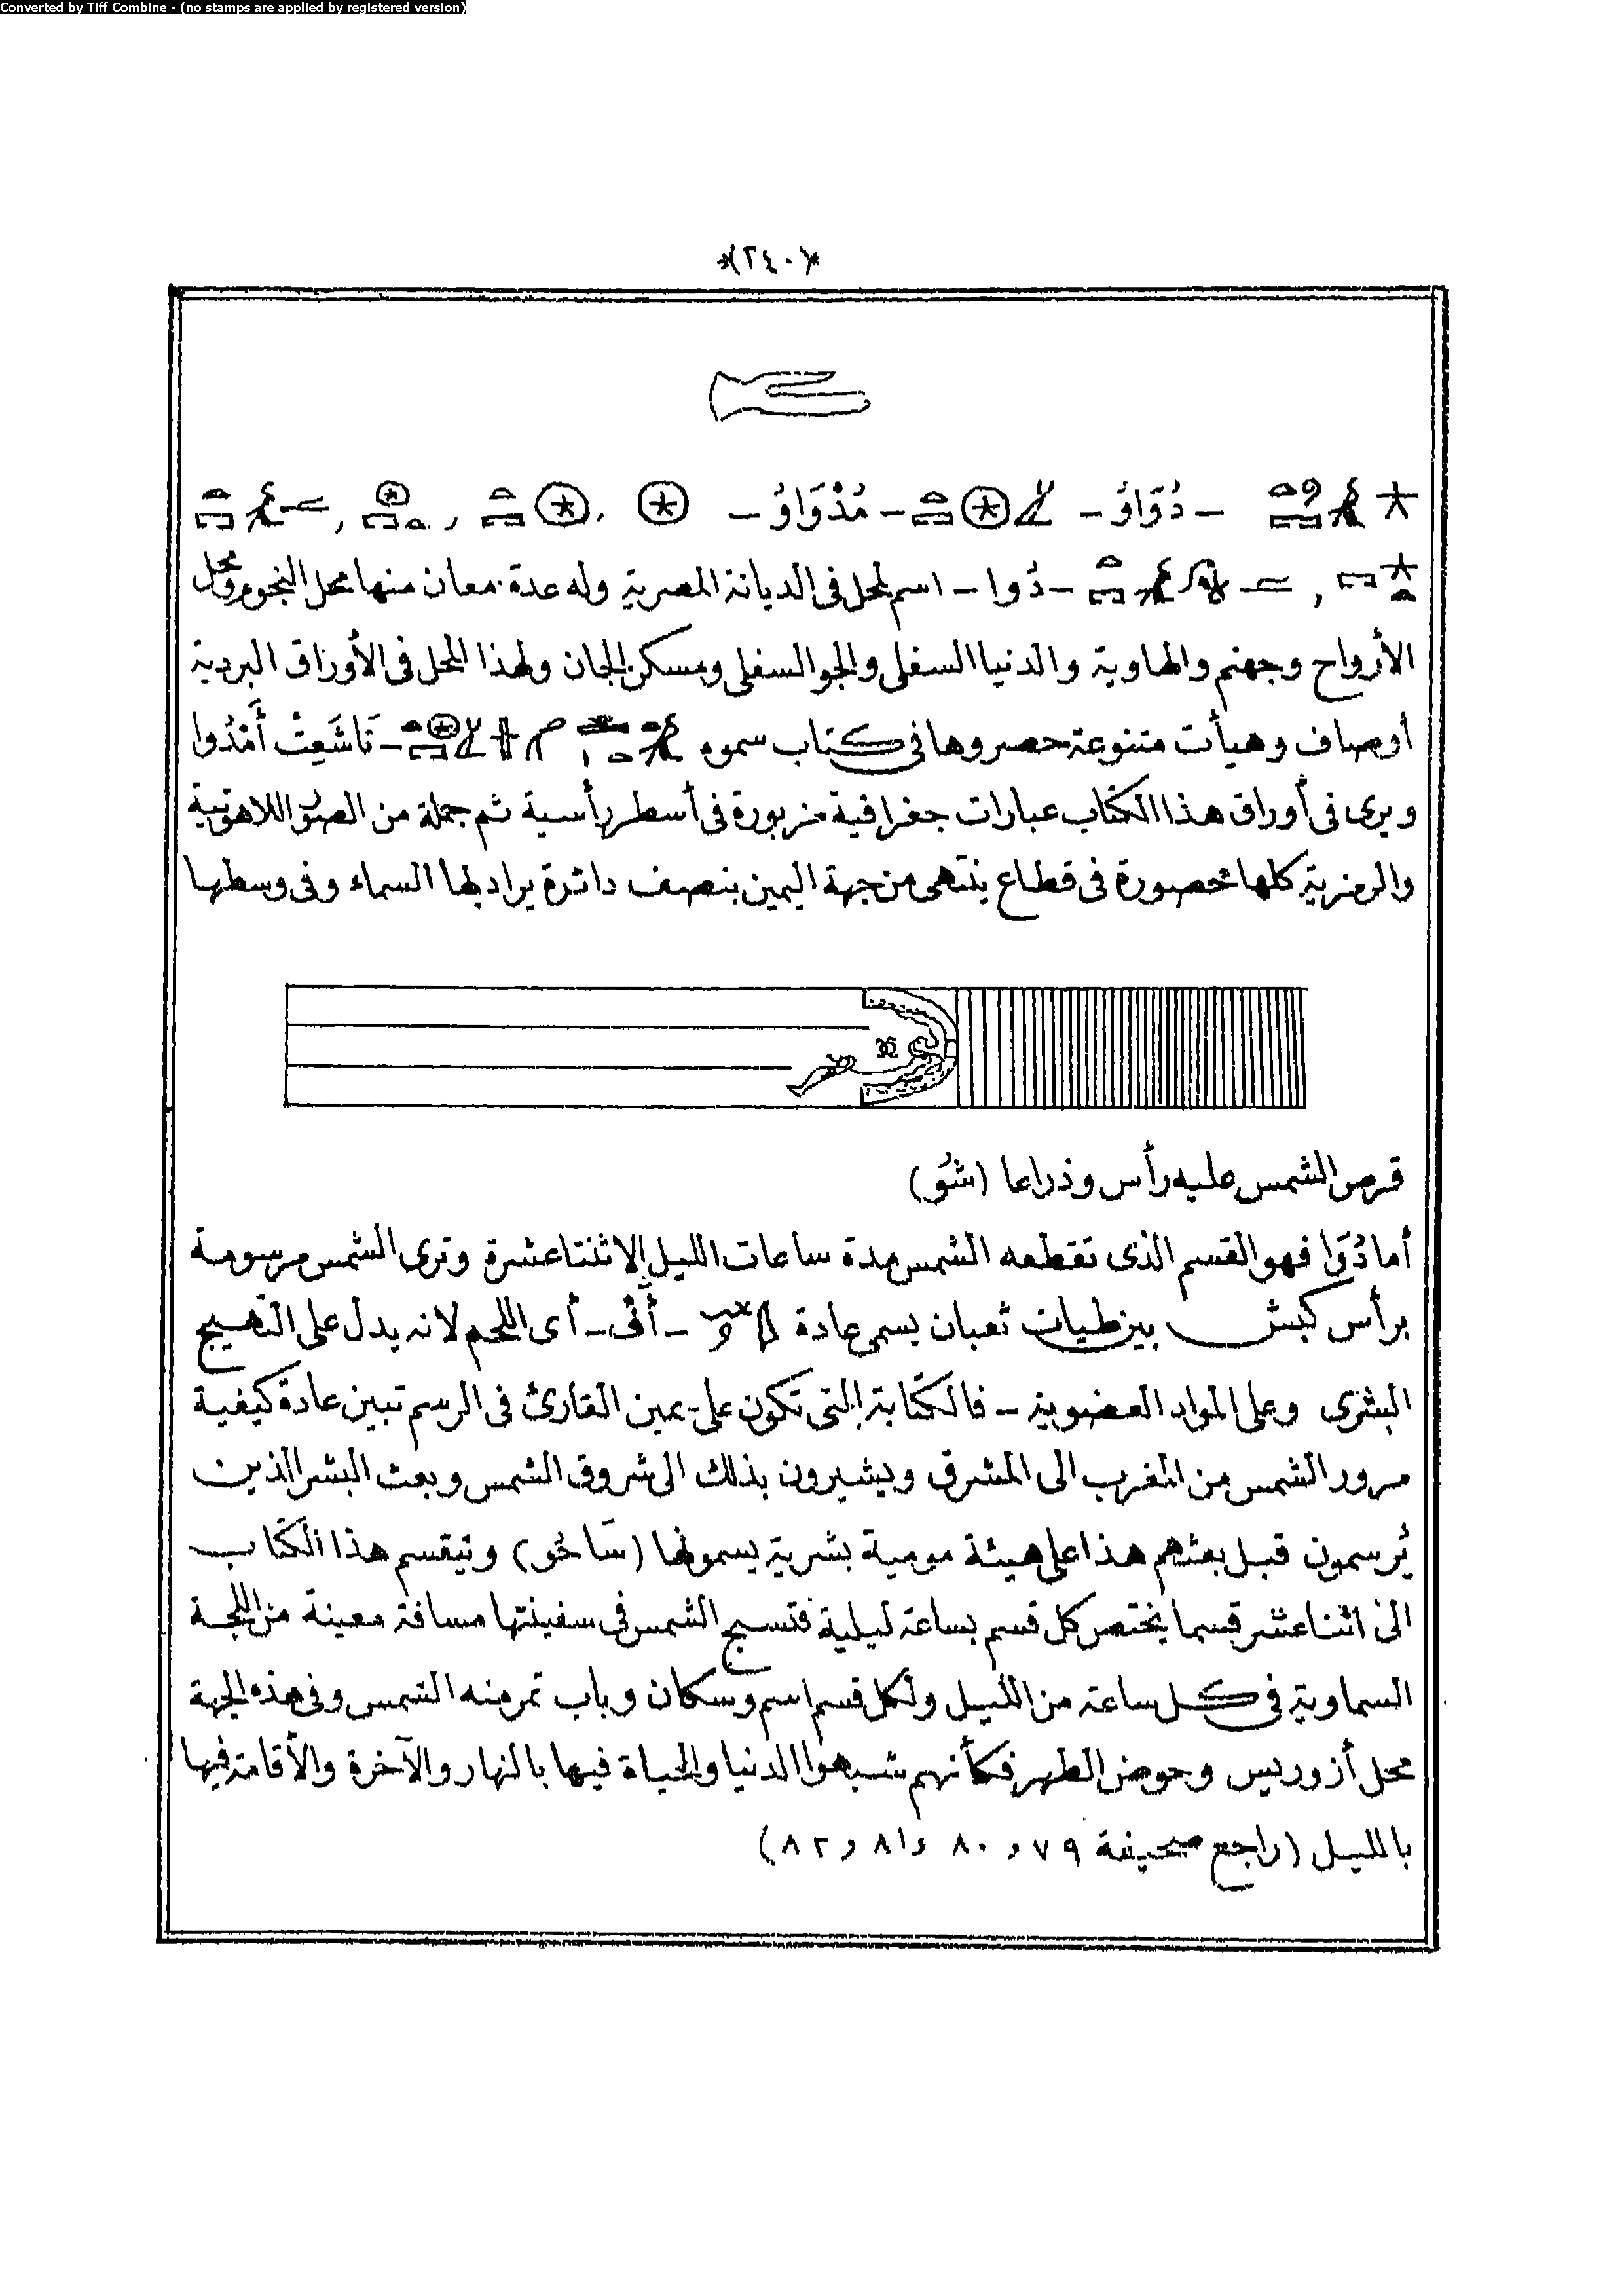 Converted by Tiff Combine - (no stamps are applied by registered version)
*(٢٤٠)*
- دُوَاوُ - - مُدْوَاوُ -
- دُوا - اسم لمحل فى الديانة المصرية وله عدة معان منها محل النجوم ومحل
الأرواح وجهنم والهاوية والدنيا السفلى والجو السفلى ومسكن الجان ولهذا المحل فى الأوراق البردية
أوصاف وهيأت متنوعة حصروها فى كتاب سموه - تَاشَعِتْ أَمْدُوا
ويرى فى أوراق هذا الكتاب عبارات جغرافية مزبورة فى أسطر رأسية ثم جملة من الصور اللاهوتية
والرمزية كلها محصورة فى قطاع ينتهى من جهة اليمين بنصف دائرة يراد بها السماء وفى وسطها
قرص الشمس عليه رأس وذراعا (شُو)
أما دُوَا فهو القسم الذى تقطعه الشمس مدة ساعات الليل الاثنتا عشرة وترى الشمس مرسومة
برأس كبش بين طيات ثعبان يسمى عادة - أَفُى - أى اللحم لانه يدل على التهييج
البشرى وعلى المواد العضوية - فالكتابة التى تكون على يمين القارئ فى الرسم تبين عادة كيفية
مرور الشمس من المغرب الى المشرق ويشيرون بذلك الى شروق الشمس وبعث البشر الذين
يُرسمون قبل بعثهم هذا على هيئة مومية بشرية يسمونها (سَاحُو) وينقسم هذا الكتاب
الى اثنا عشر قسما يختص كل قسم بساعة ليلية فتسبح الشمس فى سفينتها مسافة معينة من اللجة
السماوية فى كل ساعة من الليل ولكل قسم اسم وسكان وباب تمر منه الشمس وفى هذه الجهة
محل أزوريس وحوض الطهر فكأنهم شبهوا الدنيا والحياة فيها بالنهار والآخرة والأقامة فيها
بالليل (راجع صحيفة ٧٩ و ٨٠ و ٨١ و ٨٢)